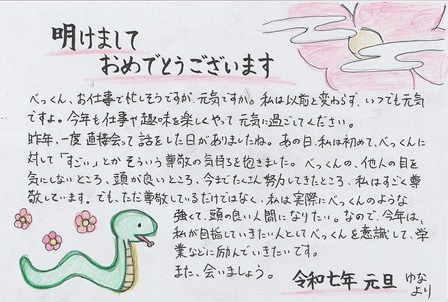 明けまして
おめでとうございます
べっくん、お仕事で忙しそうですが、元気ですか。私は以前と変わらず、いつでも元気
ですよ。今年も仕事や趣味を楽しくやって元気に過ごしてください。
昨年、一度直接会って話をした日がありましたね。あの日、私は初めて、べっくんに
対して「すごい」とかそういう尊敬の気持ちを抱きました。べっくんの、他人の目を
気にしないところ、頭が良いところ、今までたくさん努力してきたところ、私はすごく尊
敬しています。でも、ただ尊敬しているだけではなく、私は実際にべっくんのような
強くて、頭の良い人間になりたい。なので、今年は、
私が目指していきたい人としてべっくんを意識して、学
業などに励んでいきたいです。
また、会いましょう。
令和七年 元旦 ゆな
より